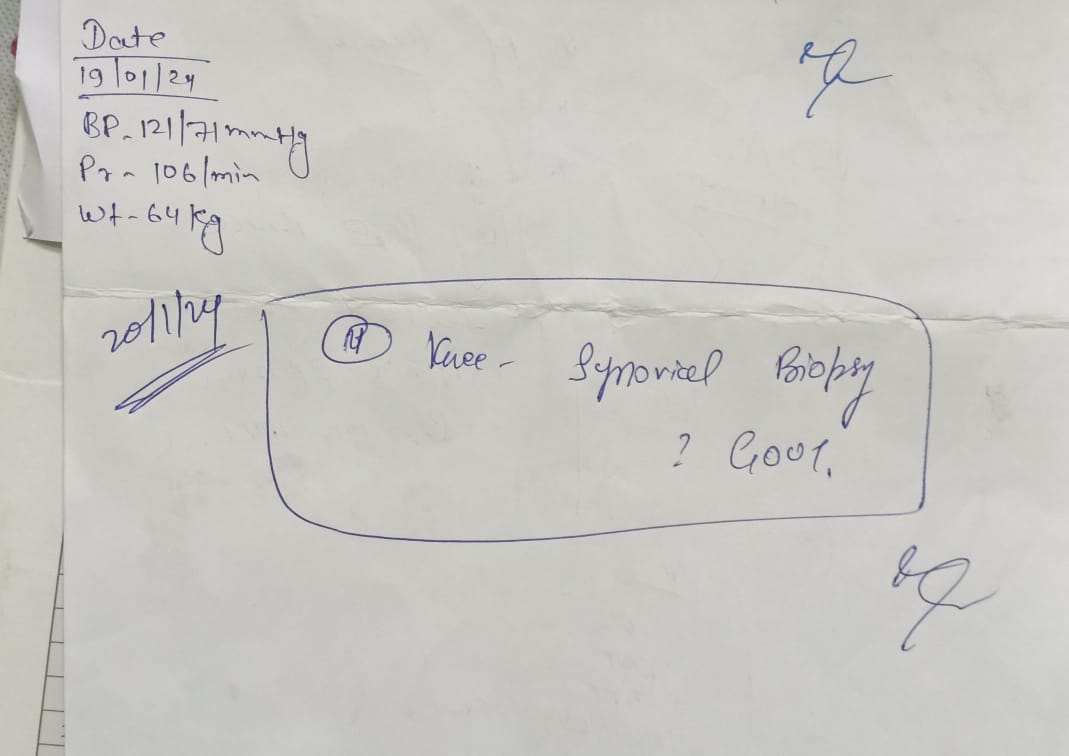 Date
19/01/24
BP - 121/71 mmHg
Pr - 106/min
Wt - 64 kg
20/1/24
Knee - Synovial Biopsy
? Gout.